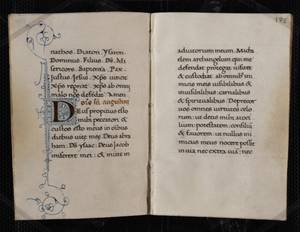 nathos. Diaton. Ysiron.
Dominus. Filius. Ds. Mi
seruator. Sapientia. Pax.
Justus Jesus. Xps uincit
Xps regnat. Xps ab omni
malo nos defendat. Amen
Deus propitius esto
mihi peccatori. &
custos esto meus in oĩbus
diebus uite mee. Deus abra
ham. Ds ysaac. Deus Jacob
miserere mei. & mitte in
192
adiutorium meum. Micha
elem archangelum qui me
defendat protegat uisitet
& custodiat ab omnibus ini
micis meis uisibilibus &
inuisibilibus carnalibus
& spiritualibus. Deprecor
uos omnes uirtutes celo
rum. ut detis mihi auxi
lium. potestatem. consiliũ
& fauorem. ut nullus ini
micus meus nocere possit
in uia nec extra uia. nec